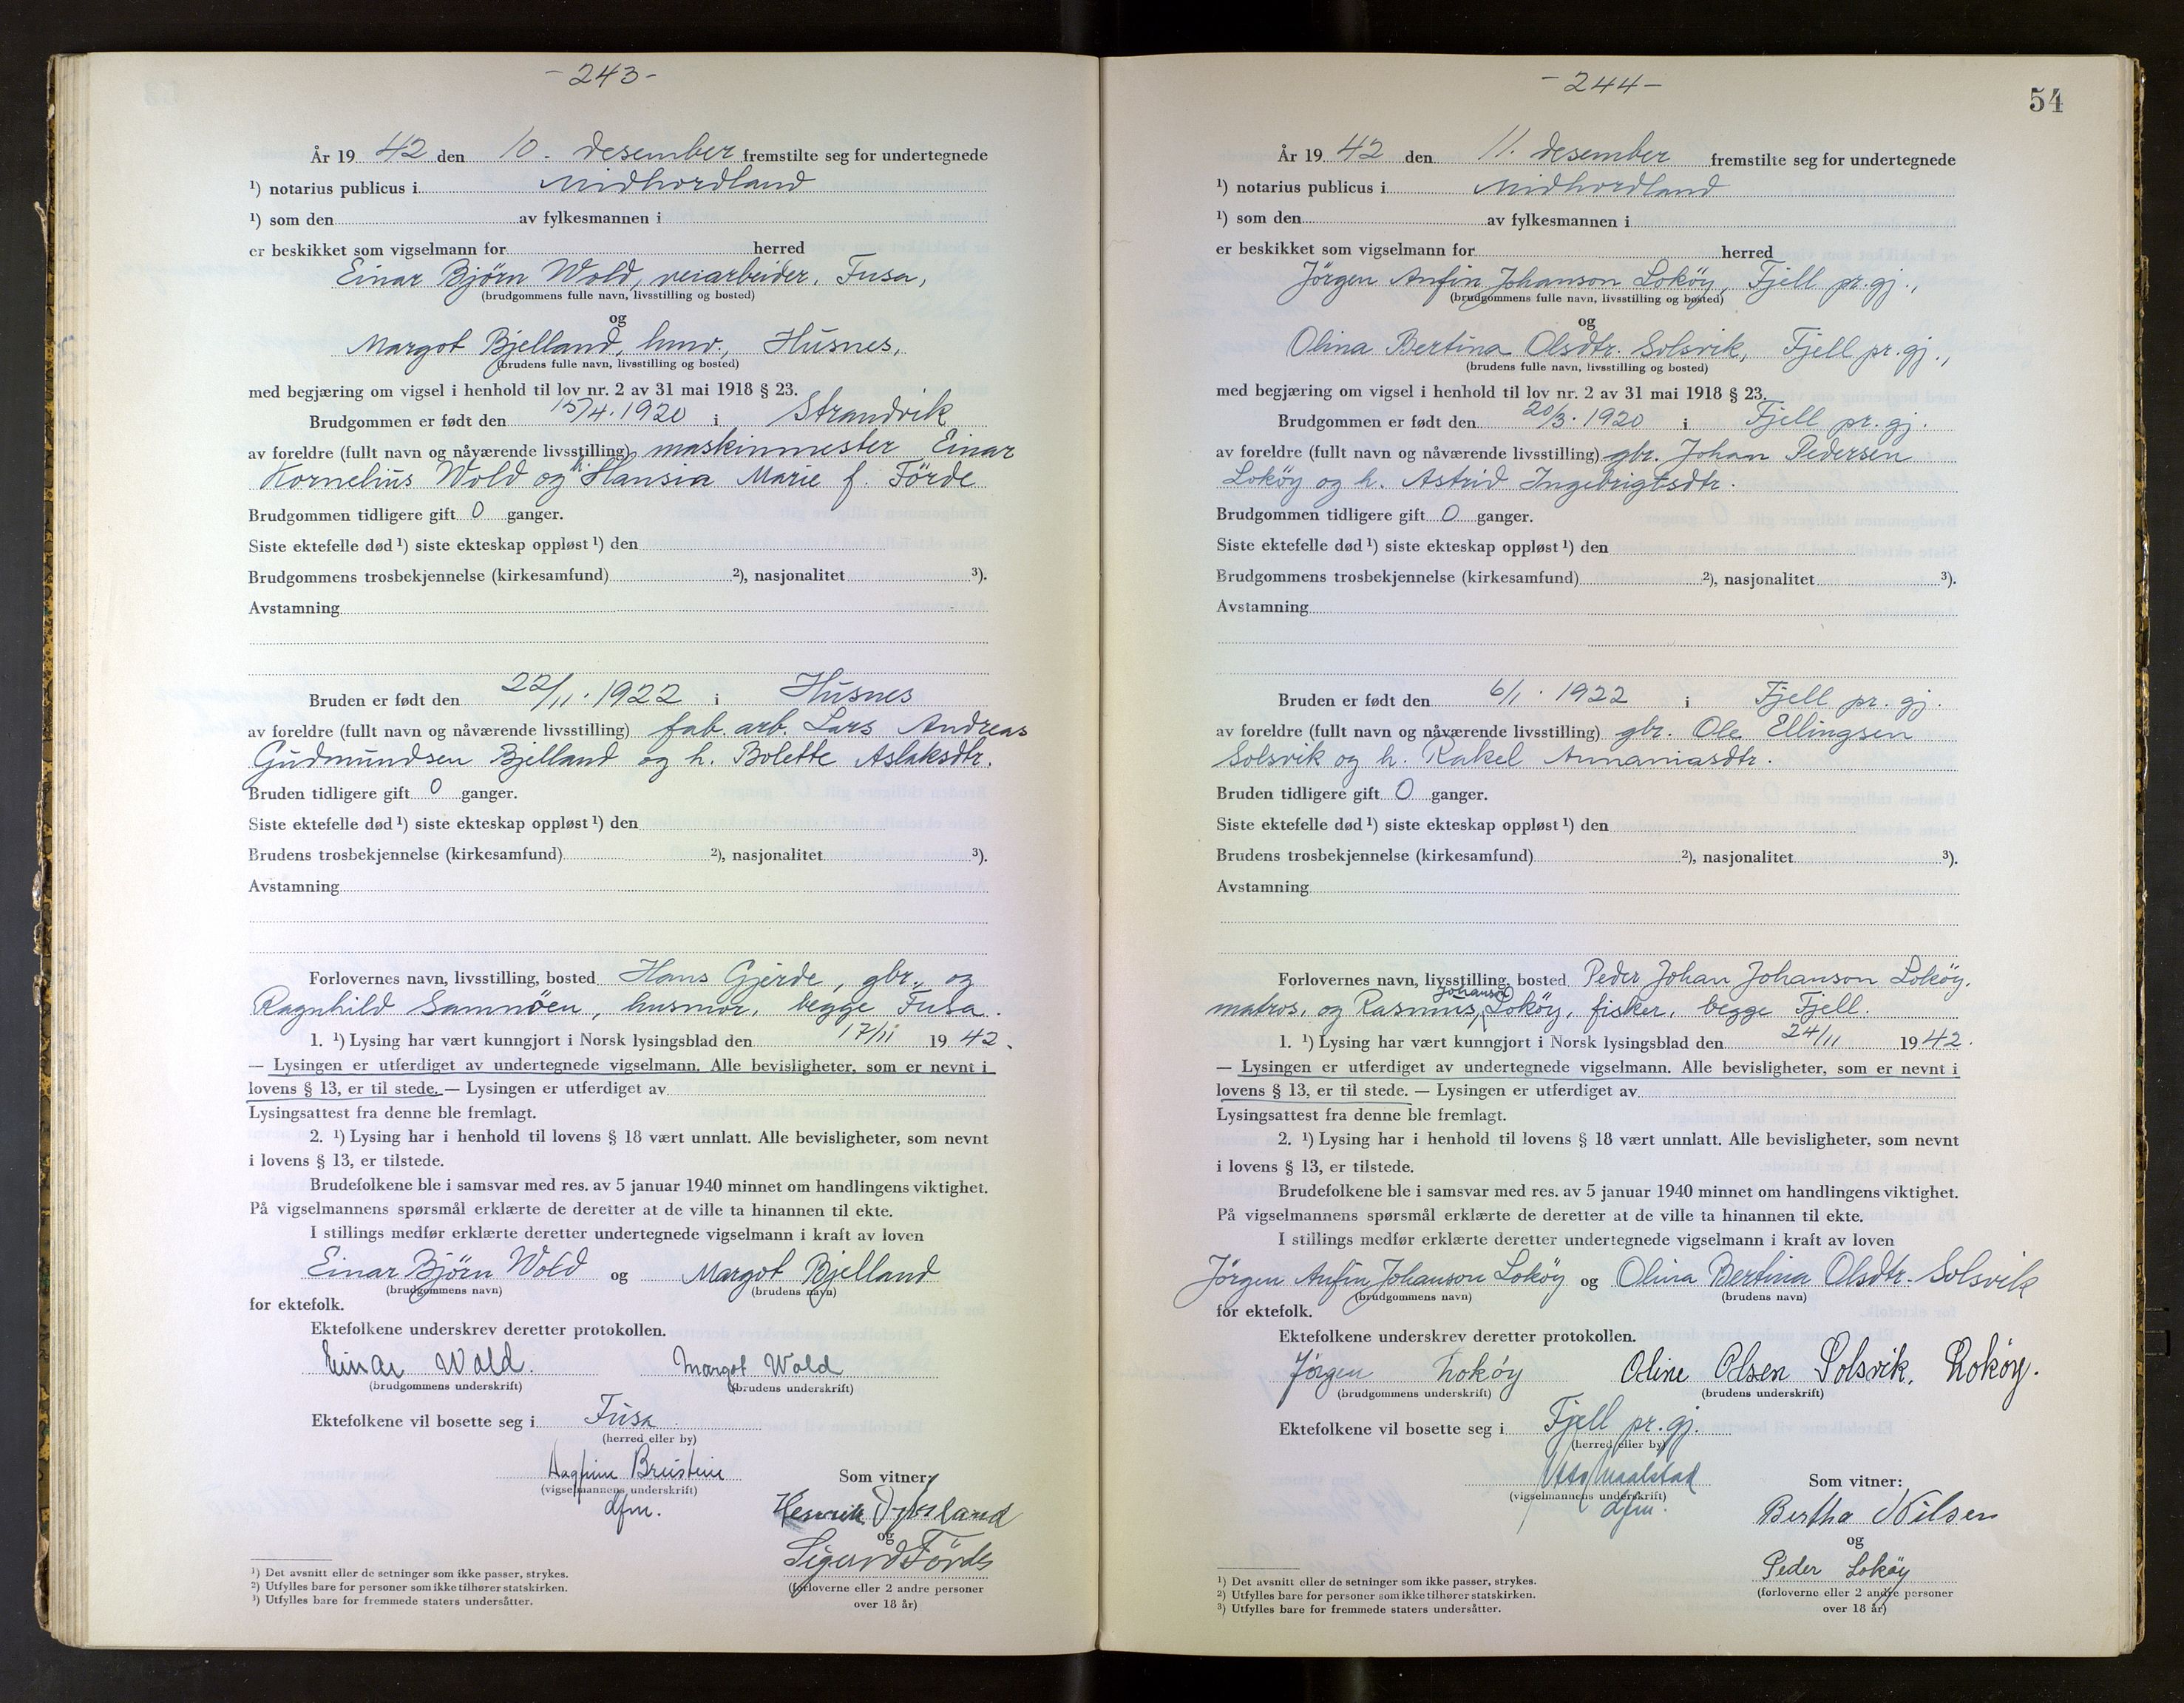 -243-
År 19 42 den 10. desember fremstilte seg for undertegnede
¹) notarius publicus i Midhordland
¹) som den av fylkesmannen i
er beskikket som vigselmann for herred
Einar Björn Wold, veiarbeider, Fusa,
(brudgommens fulle navn, livsstilling og bosted)
og
Margot Bjelland, hmv., Husnes,
(brudens fulle navn, livsstilling og bosted)
med begjæring om vigsel i henhold til lov nr. 2 av 31 mai 1918 § 23.
Brudgommen er født den 15/4.1920 i Strandvik
av foreldre (fullt navn og nåværende livsstilling) maskinmester Einar
Kornelius Wold og h. Hansia Marie f. Förde
Brudgommen tidligere gift 0 ganger.
Siste ektefelle død ¹) siste ekteskap oppløst ¹) den
Brudgommens trosbekjennelse (kirkesamfund) ²), nasjonalitet ³).
Avstamning
Bruden er født den 22/11.1922 i Husnes
av foreldre (fullt navn og nåværende livsstilling) fab. arb. Lars Andreas
Gudmundsen Bjelland og h. Bolette Aslaksdtr.
Bruden tidligere gift 0 ganger.
Siste ektefelle død ¹) siste ekteskap oppløst ¹) den
Brudens trosbekjennelse (kirkesamfund) ²), nasjonalitet ³).
Avstamning
Forlovernes navn, livsstilling, bosted Hans Gjerde, gbr., og
Ragnhild Samnöen, husmor, begge Fusa.
1. ¹) Lysing har vært kunngjort i Norsk lysingsblad den 17/11 19 42.
— Lysingen er utferdiget av undertegnede vigselmann. Alle bevisligheter, som er nevnt i
lovens § 13, er til stede. — Lysingen er utferdiget av
Lysingsattest fra denne ble fremlagt.
2. ¹) Lysing har i henhold til lovens § 18 vært unnlatt. Alle bevisligheter, som nevnt
i lovens § 13, er tilstede.
Brudefolkene ble i samsvar med res. av 5 januar 1940 minnet om handlingens viktighet.
På vigselmannens spørsmål erklærte de deretter at de ville ta hinannen til ekte.
I stillings medfør erklærte deretter undertegnede vigselmann i kraft av loven
Einar Björn Wold og Margot Bjelland
(brudgommens navn) (brudens navn)
for ektefolk.
Ektefolkene underskrev deretter protokollen.
Einar Wold. Margot Wold
(brudgommens underskrift) (brudens underskrift)
Ektefolkene vil bosette seg i Fusa
(herred eller by)
Breistein
(vigselmannens underskrift)
dfm.
Som vitner:
Henrik
og
Sigurd Förde
(forloverne eller 2 andre personer
over 18 år)
¹) Det avsnitt eller de setninger som ikke passer, strykes.
²) Utfylles bare for personer som ikke tilhører statskirken.
³) Utfylles bare for fremmede staters undersåtter.
-244-
54
År 19 42 den 11. desember fremstilte seg for undertegnede
¹) notarius publicus i Midhordland
¹) som den av fylkesmannen i
er beskikket som vigselmann for herred
Jörgen Anfin Johanson Loköy, Fjell pr.gj.,
(brudgommens fulle navn, livsstilling og bosted)
og
Olina Bertina Olsdtr. Solsvik, Fjell pr.gj.,
(brudens fulle navn, livsstilling og bosted)
med begjæring om vigsel i henhold til lov nr. 2 av 31 mai 1918 § 23.
Brudgommen er født den 20/3.1920 i Fjell pr.gj.
av foreldre (fullt navn og nåværende livsstilling) gbr. Johan Pedersen
Loköy og h. Astrid Ingebrigtsdtr.
Brudgommen tidligere gift 0 ganger.
Siste ektefelle død ¹) siste ekteskap oppløst ¹) den
Brudgommens trosbekjennelse (kirkesamfund) ²), nasjonalitet ³).
Avstamning
Bruden er født den 6/1.1922 i Fjell pr.gj.
av foreldre (fullt navn og nåværende livsstilling) gbr. Ole Ellingsen
Solsvik og h. Rakel Annaniasdtr.
Bruden tidligere gift 0 ganger.
Siste ektefelle død ¹) siste ekteskap oppløst ¹) den
Brudens trosbekjennelse (kirkesamfund) ²), nasjonalitet ³).
Avstamning
Forlovernes navn, livsstilling, bosted Peder Johan Johanson Loköy,
matros, og Rasmus Johanson Loköy, fisker, begge Fjell.
1. ¹) Lysing har vært kunngjort i Norsk lysingsblad den 24/11 19 42.
— Lysingen er utferdiget av undertegnede vigselmann. Alle bevisligheter, som er nevnt i
lovens § 13, er til stede. — Lysingen er utferdiget av
Lysingsattest fra denne ble fremlagt.
2. ¹) Lysing har i henhold til lovens § 18 vært unnlatt. Alle bevisligheter, som nevnt
i lovens § 13, er tilstede.
Brudefolkene ble i samsvar med res. av 5 januar 1940 minnet om handlingens viktighet.
På vigselmannens spørsmål erklærte de deretter at de ville ta hinannen til ekte.
I stillings medfør erklærte deretter undertegnede vigselmann i kraft av loven
Jörgen Anfin Johanson Loköy og Olina Bertina Olsdtr. Solsvik
(brudgommens navn) (brudens navn)
for ektefolk.
Ektefolkene underskrev deretter protokollen.
Jörgen Loköy Oline Olsen Solsvik. Loköy.
(brudgommens underskrift) (brudens underskrift)
Ektefolkene vil bosette seg i Fjell pr.gj.
(herred eller by)
(vigselmannens underskrift)
dfm.
Som vitner:
Bertha Nilsen
og
Peder Loköy
(forloverne eller 2 andre personer
over 18 år)
¹) Det avsnitt eller de setninger som ikke passer, strykes.
²) Utfylles bare for personer som ikke tilhører statskirken.
³) Utfylles bare for fremmede staters undersåtter.